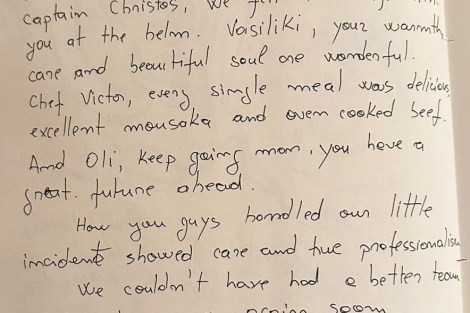 Captain Christos, we
you at the helm. Vasiliki, your warmth
care and beautiful soul are wonderful.
Chef Victor, every single meal was delicious,
excellent mousaka and oven cooked beef.
And Oli, keep going man, you have a
great future ahead.
How you guys handled our little
incident showed care and true professionalism
We couldn't have had a better team
again soon